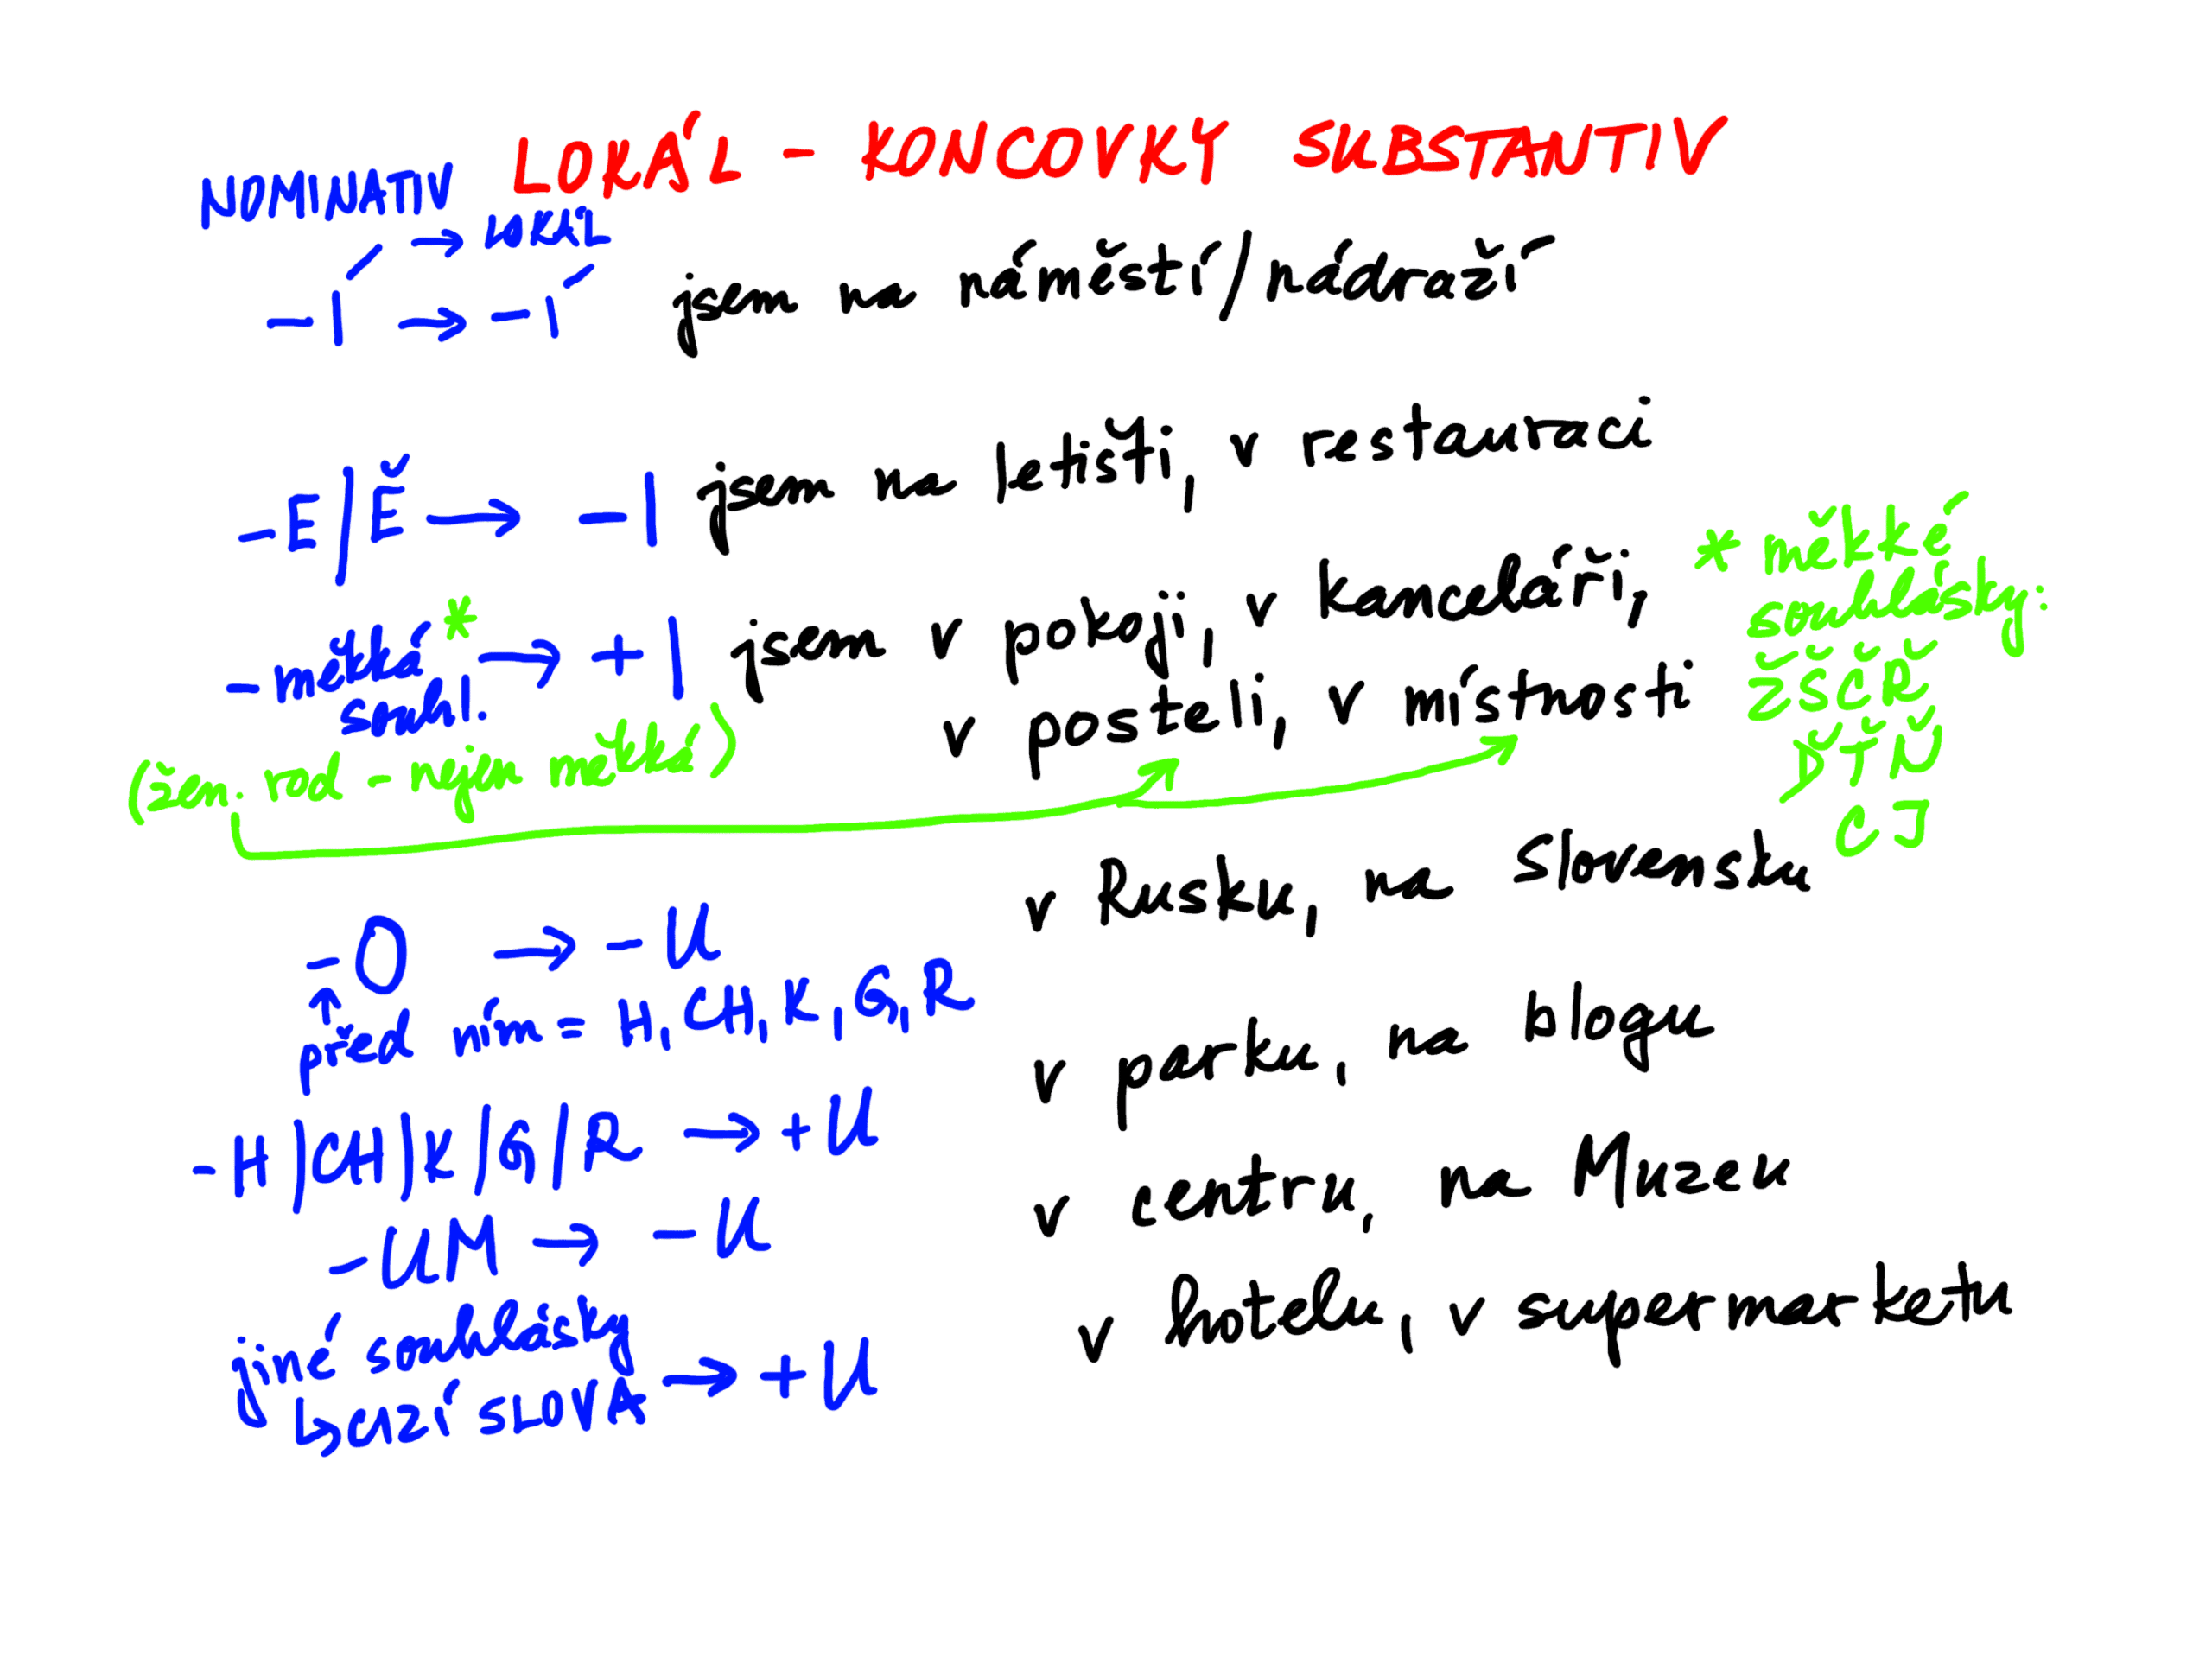 LOKÁL - KONCOVKY SUBSTANTIV
NOMINATIV → LOKÁL
-Í → -Í jsem na náměstí/nádraží
-E/Ě → -I jsem na letišti, v restauraci
-měkká* souhl. → +I jsem v pokoji, v kanceláři,
v posteli, v místnosti
(žen. rod - nejen měkká)
* měkké
souhlásky:
ŽŠČŘ
ĎŤŇ
CJ
-O → -U v Rusku, na Slovensku
↑
před ním = H, CH, K, G, R
v parku, na blogu
-H/CH/K/G/R → +U
v centru, na Muzeu
-UM → -U
v hotelu, v supermarketu
jiné souhlásky
↳ CIZÍ SLOVA → +U